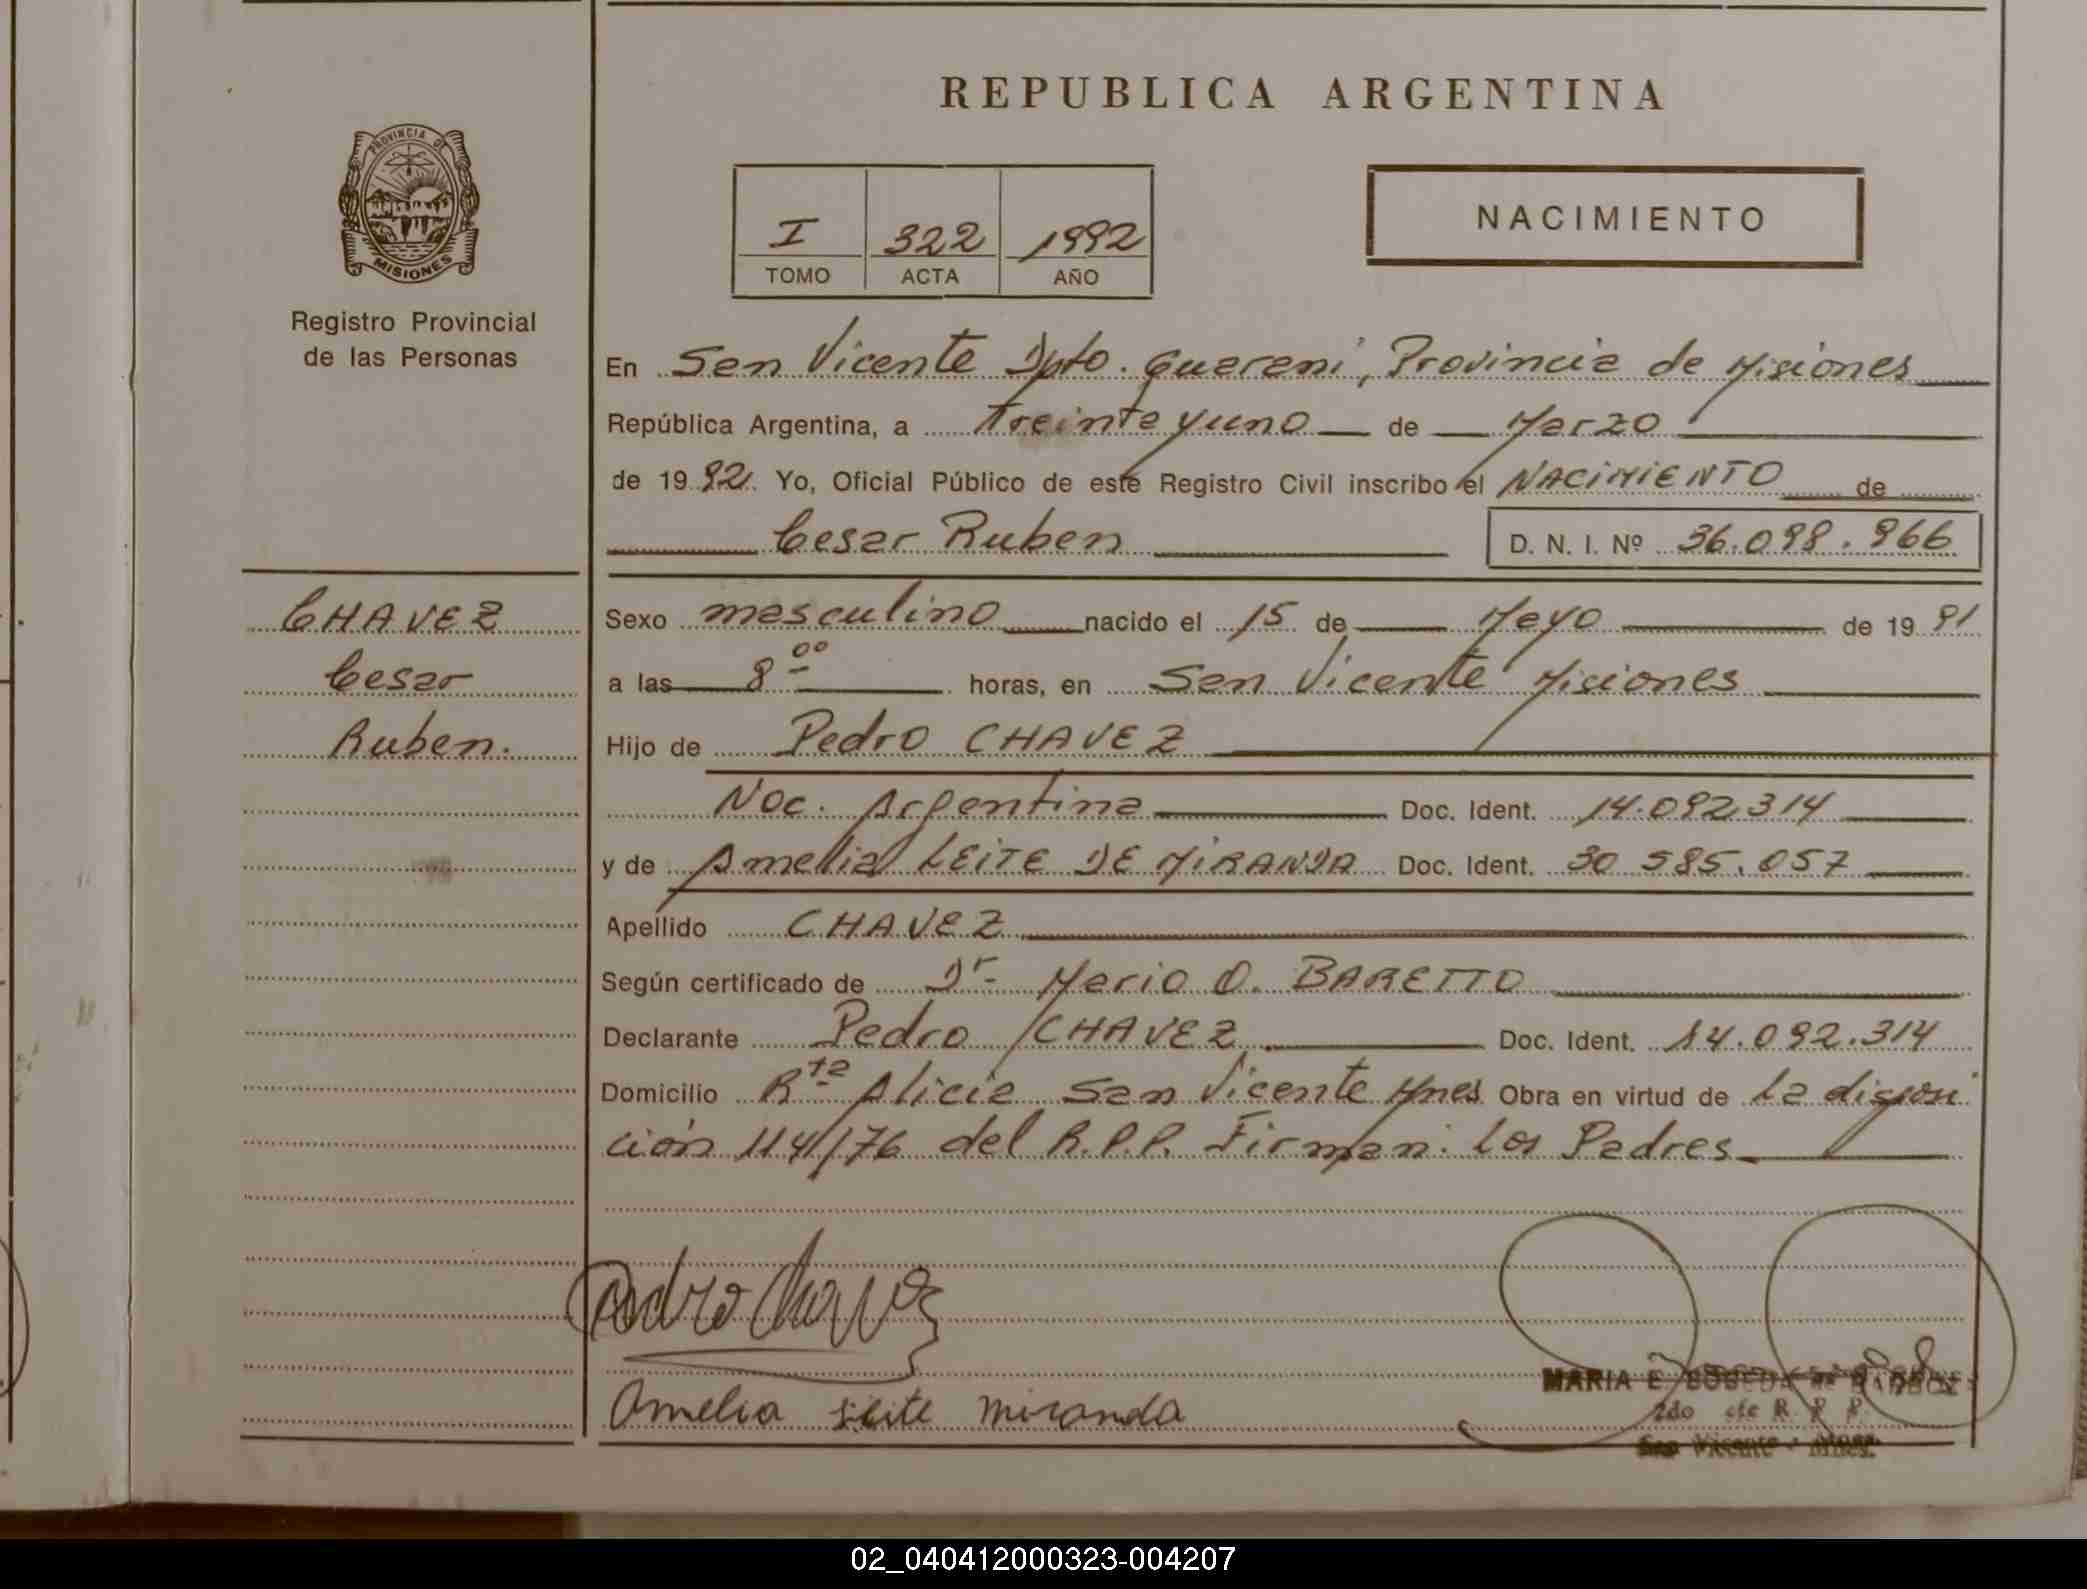 REPUBLICA ARGENTINA
PROVINCIA DE
MISIONES
Registro Provincial
de las Personas
I 322 1992
TOMO ACTA AÑO
NACIMIENTO
En San Vicente Dpto. Guarani, Provincia de Misiones
República Argentina, a Treinta y uno de Marzo
de 1992. Yo, Oficial Público de este Registro Civil inscribo el NACIMIENTO de
Cesar Ruben D. N. I. Nº 36.098.966
CHAVEZ
Cesar
Ruben.
Sexo masculino nacido el 15 de Mayo de 1991
a las 8 00 horas, en San Vicente Misiones
Hijo de Pedro CHAVEZ
Nac. Argentina Doc. Ident. 14.092.314
y de Amelia LEITE DE MIRANDA Doc. Ident. 30 585.057
Apellido CHAVEZ
Según certificado de Dr. Mario O. BARETTO
Declarante Pedro CHAVEZ Doc. Ident. 14.092.314
Domicilio Rta Alicia San Vicente Mnes Obra en virtud de La disposi
ción 114/76 del R.P.P. Firman: Los Padres
Pedro Chavez
Amelia Leite Miranda
MARIA E.
R. P. P.
San Vicente - Mnes.
02_040412000323-004207